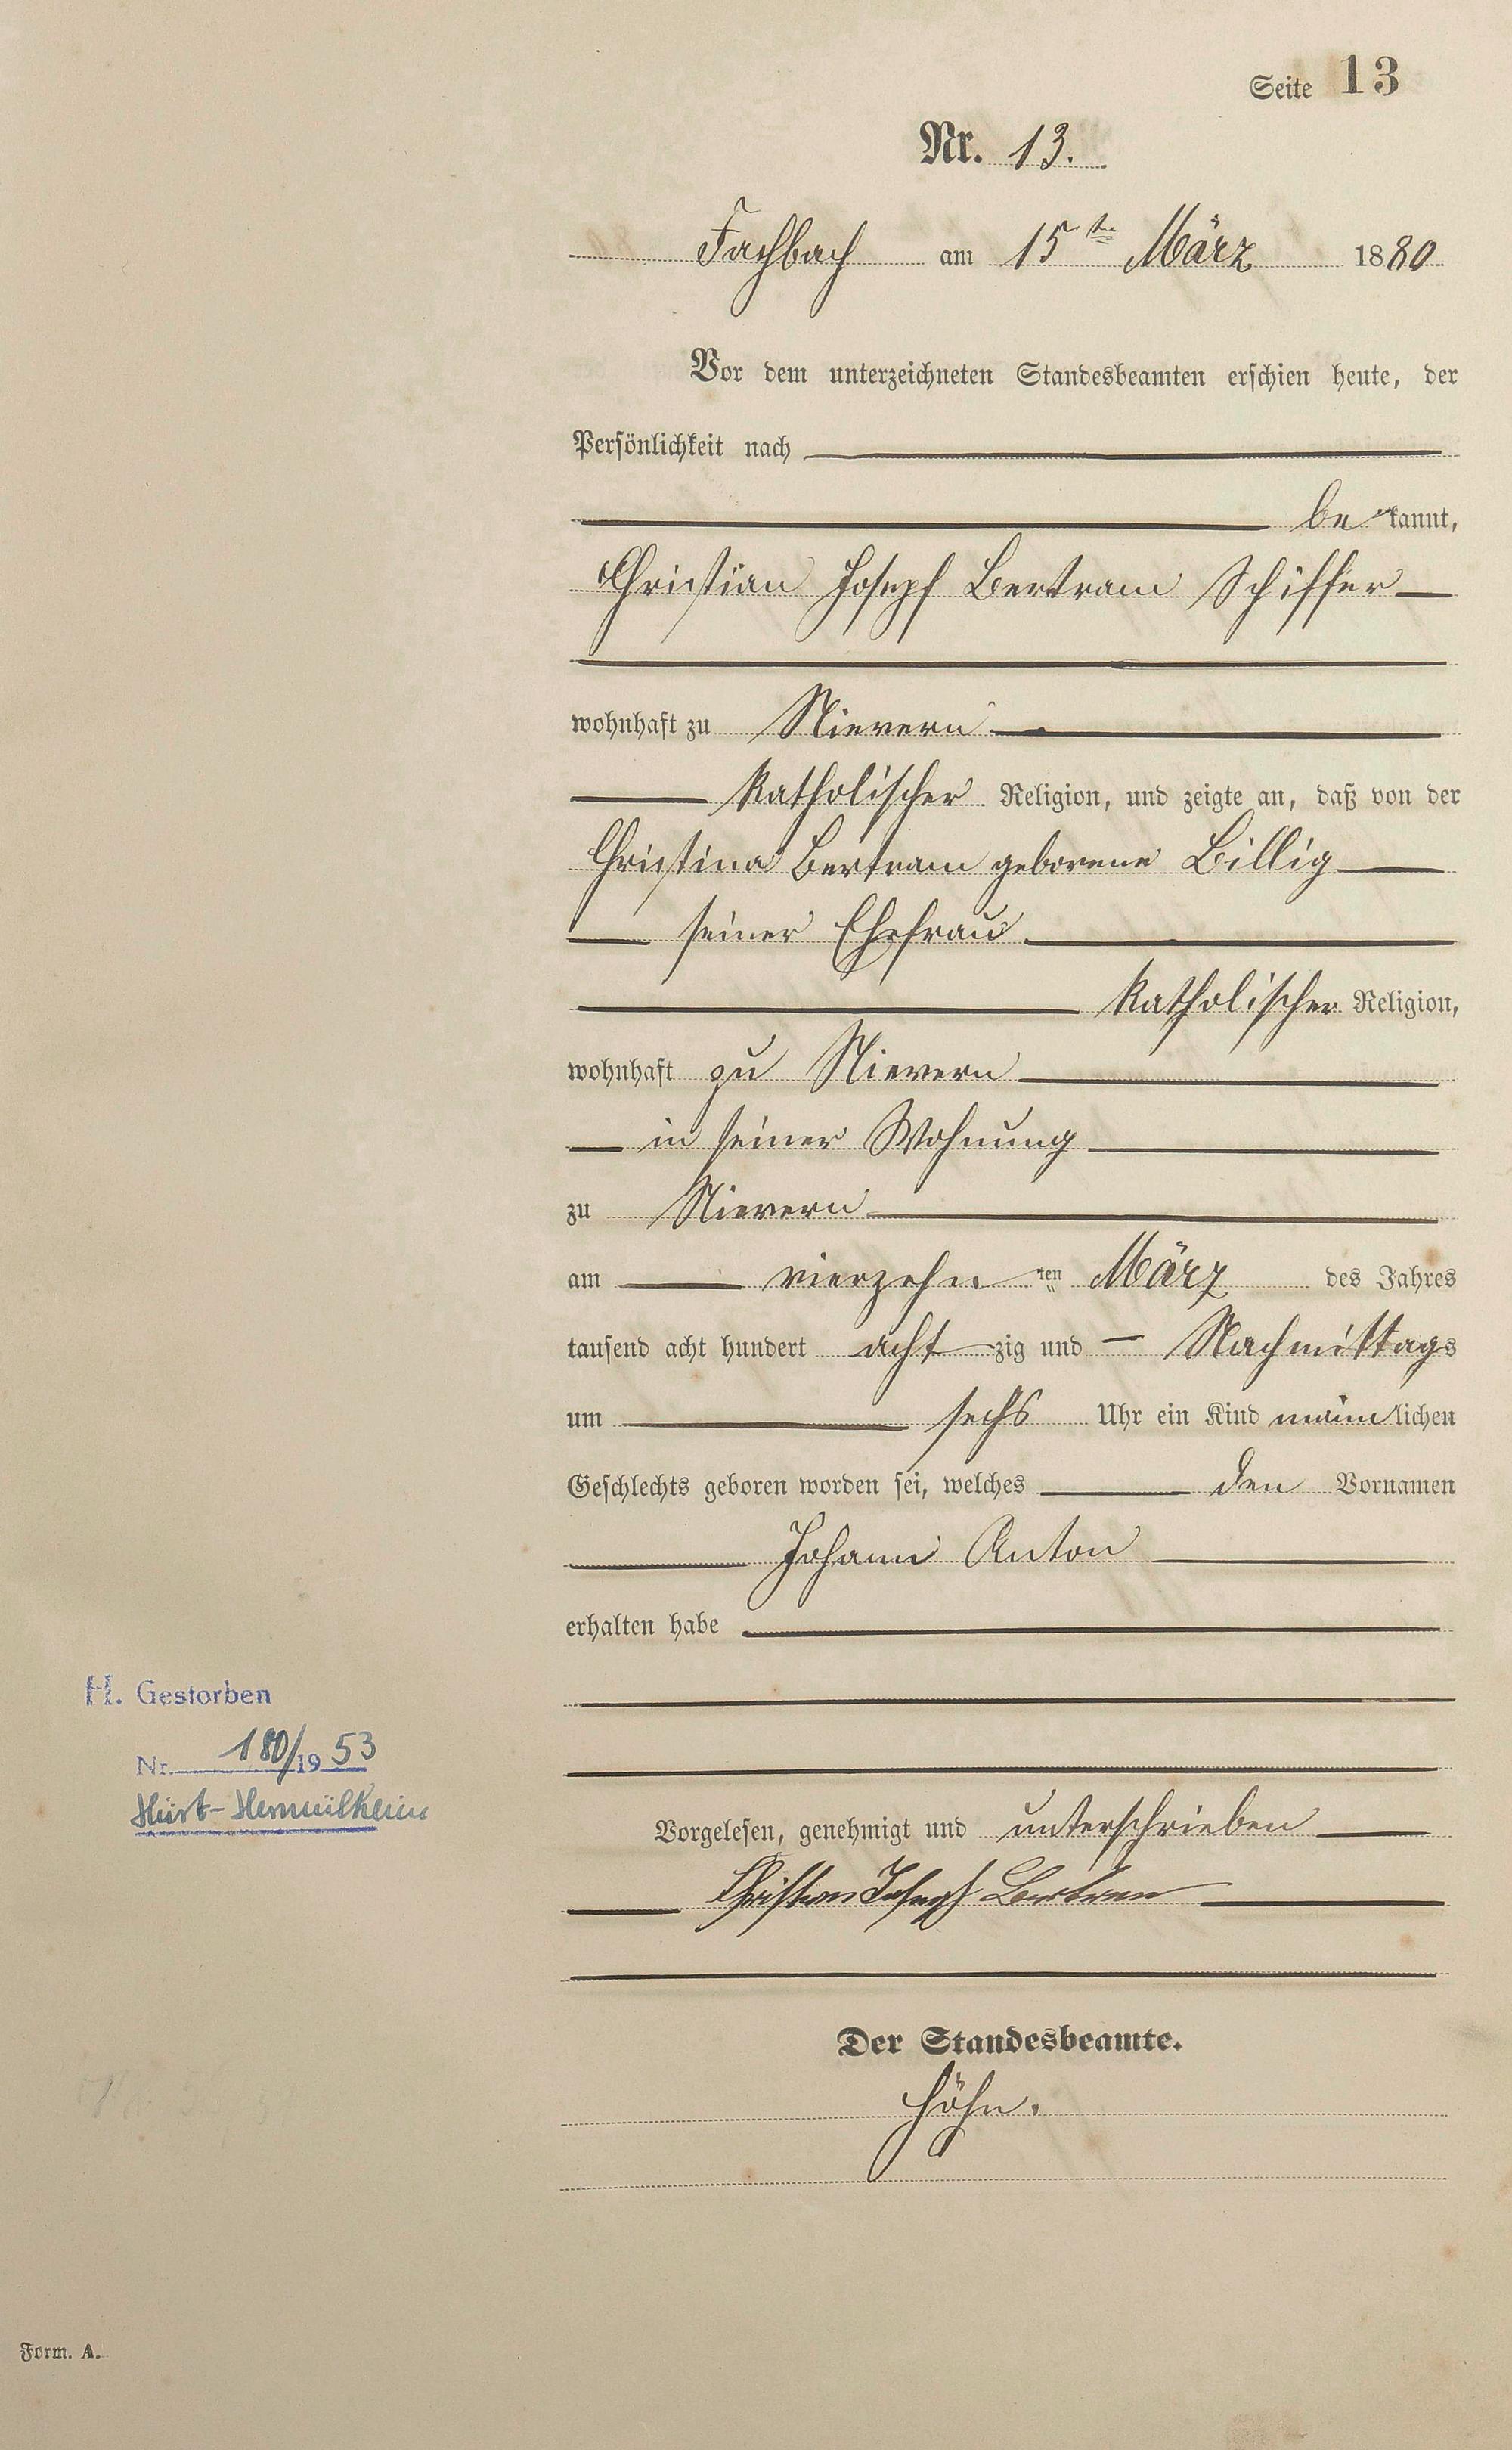 Seite 13
Nr. 13.
Fachbach am 15ten März 1880
Vor dem unterzeichneten Standesbeamten erschien heute, der
Persönlichkeit nach
be kannt,
Christian Joseph Bertram Schiffer
wohnhaft zu Nievern
katholischer Religion, und zeigte an, daß von der
Christina Bertram geborene Billig
seiner Ehefrau
katholischer Religion,
wohnhaft zu Nievern
in seiner Wohnung
zu Nievern
am vierzehn ten März des Jahres
tausend acht hundert acht zig und Nachmittags
um sechs Uhr ein Kind männlichen
Geschlechts geboren worden sei, welches den Vornamen
Johann Anton
erhalten habe
H. Gestorben
Nr. 180/1953
Hürt-Hermülheim
Vorgelesen, genehmigt und unterschrieben
Christian Joseph Bertram
Der Standesbeamte.
Höhn.
Form. A.